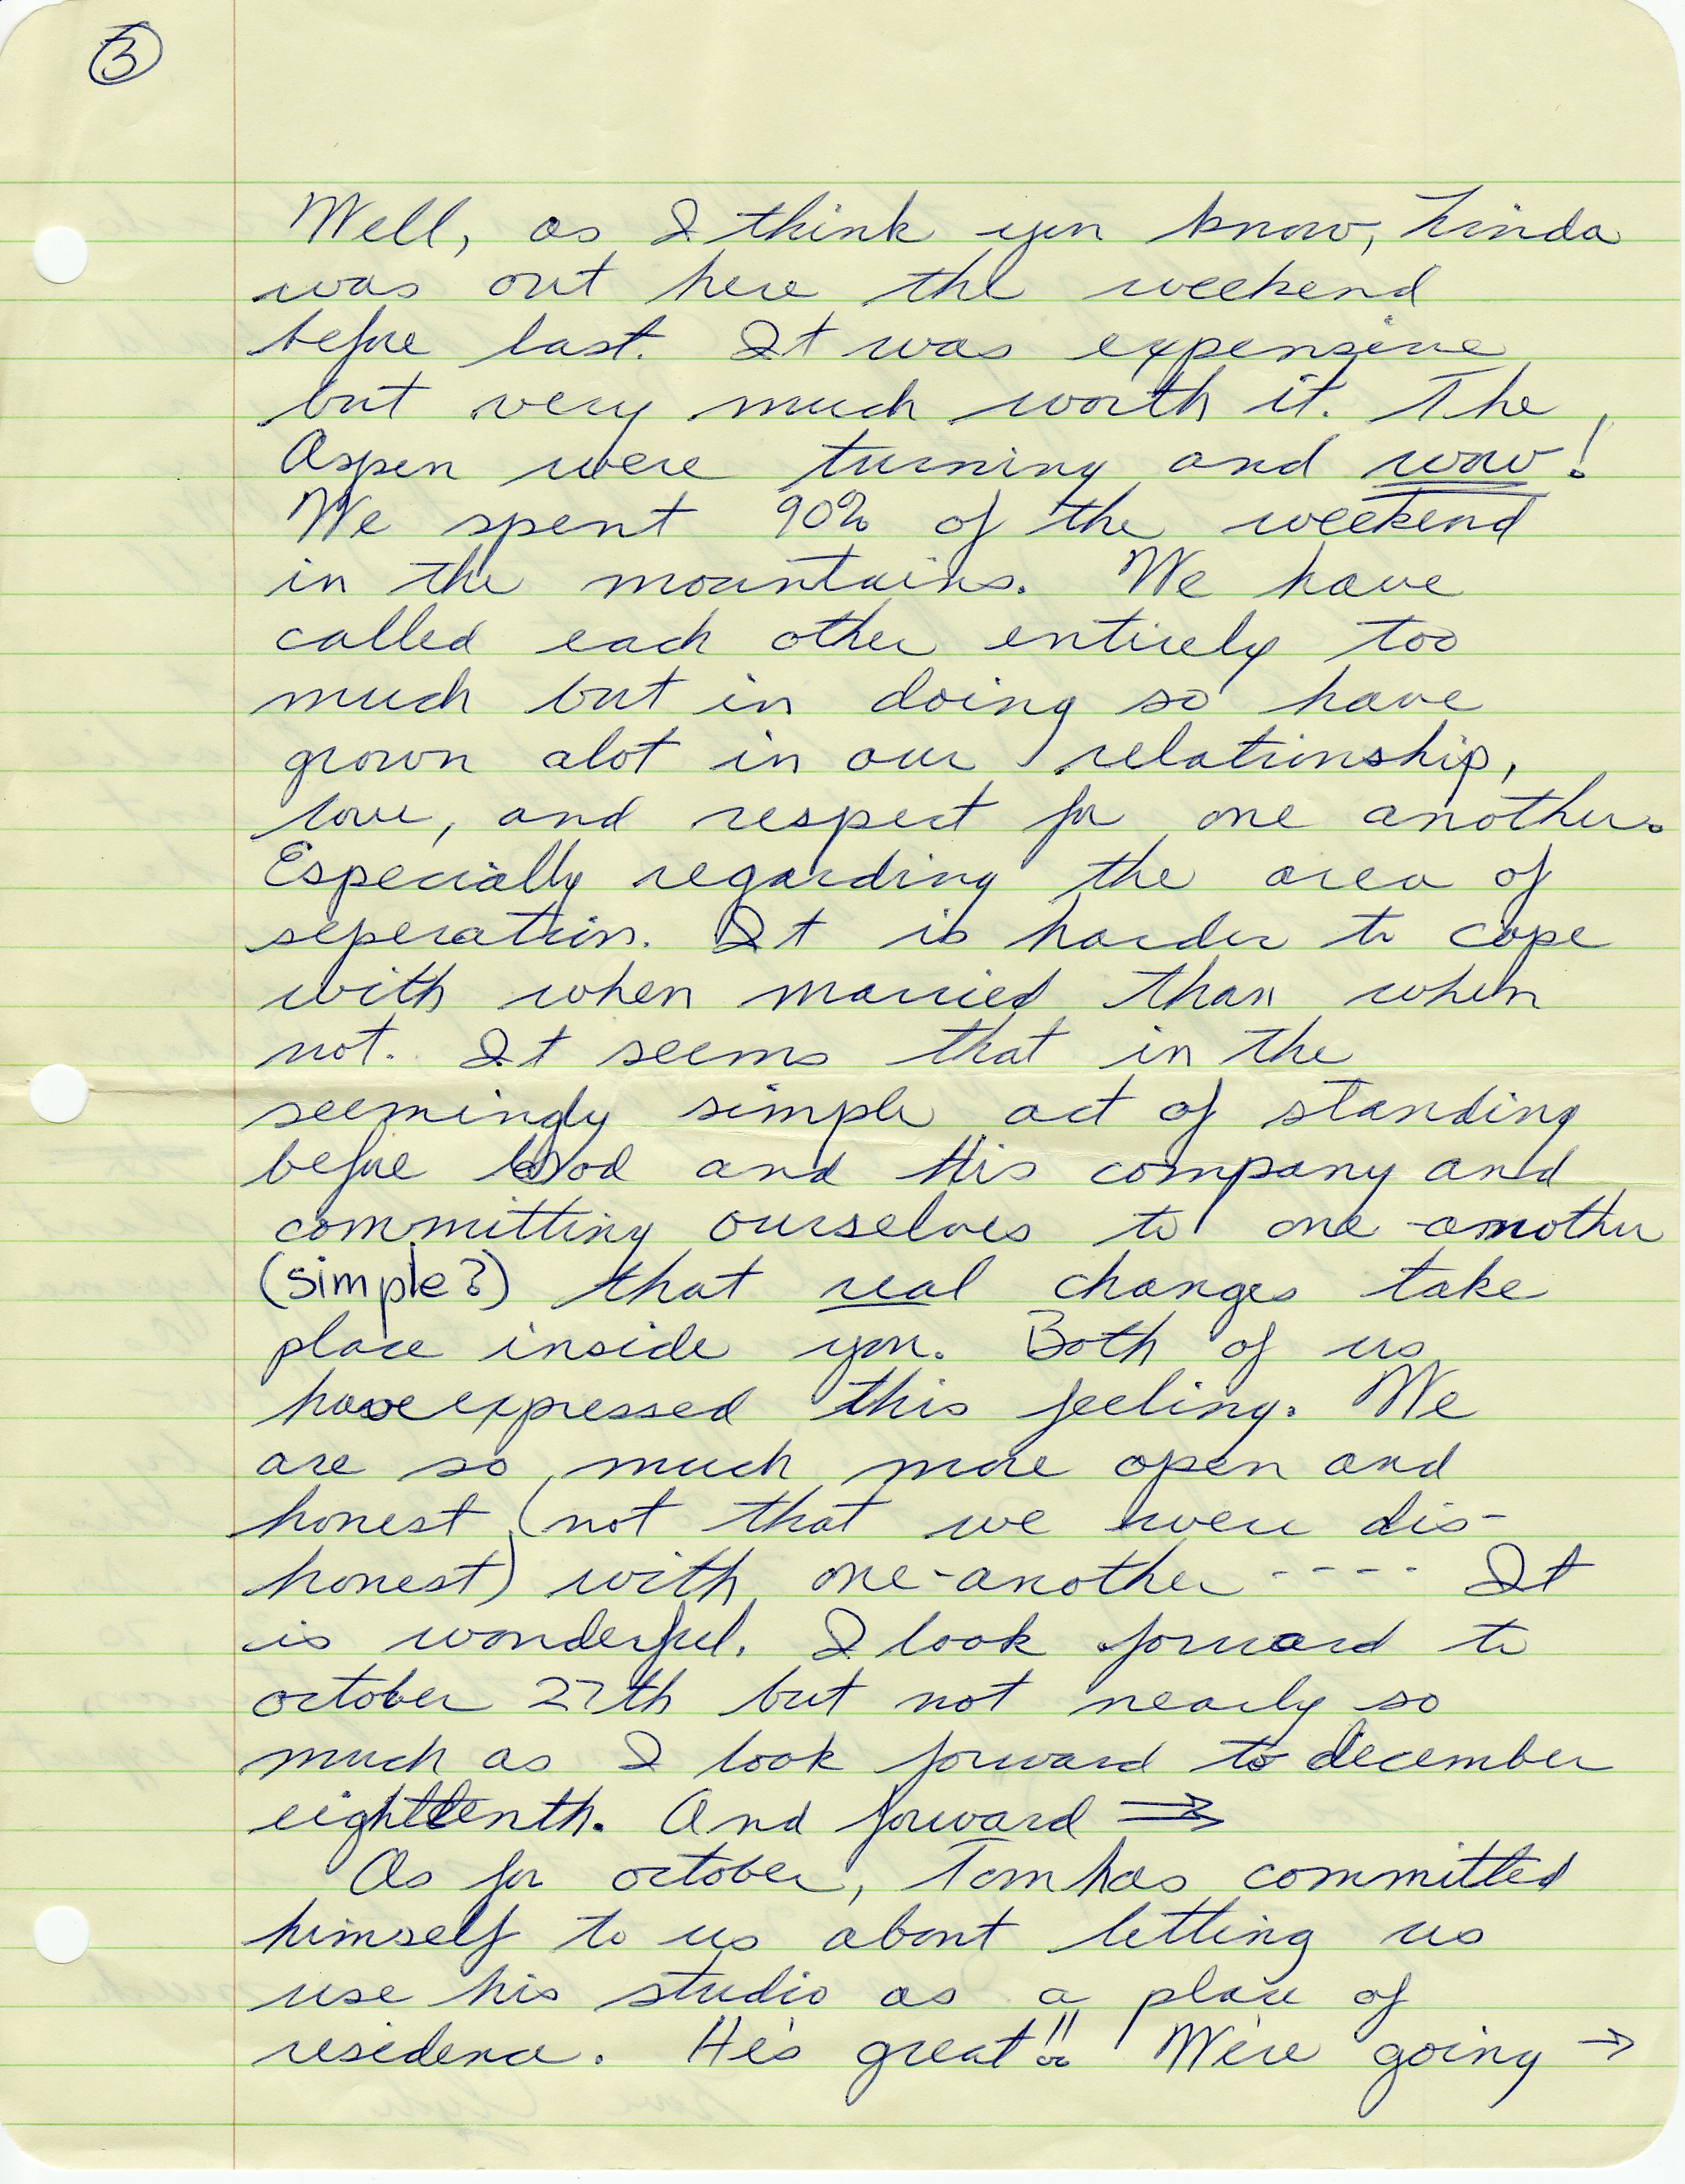 3
Well, as I think you know, Linda
was out here the weekend
before last. It was expensive
but very much worth it. The
Aspen were turning and wow!
We spent 90% of the weekend
in the mountains. We have
called each other entirely too
much but in doing so have
grown alot in our relationship,
love, and respect for one another.
Especially regarding the area of
seperation. It is harder to cope
with when married than when
not. It seems that in the
seemingly simple act of standing
before God and His company and
committing ourselves to one another
(simple?) that real changes take
place inside you. Both of us
have expressed this feeling. We
are so much more open and
honest (not that we were dis-
honest) with one-another ---- It
is wonderful. I look forward to
october 27th but not nearly so
much as I look forward to december
eighteenth. And forward ⇒
As for october, Tom has committed
himself to us about letting us
use his studio as a place of
residence. He's great!! We're going →